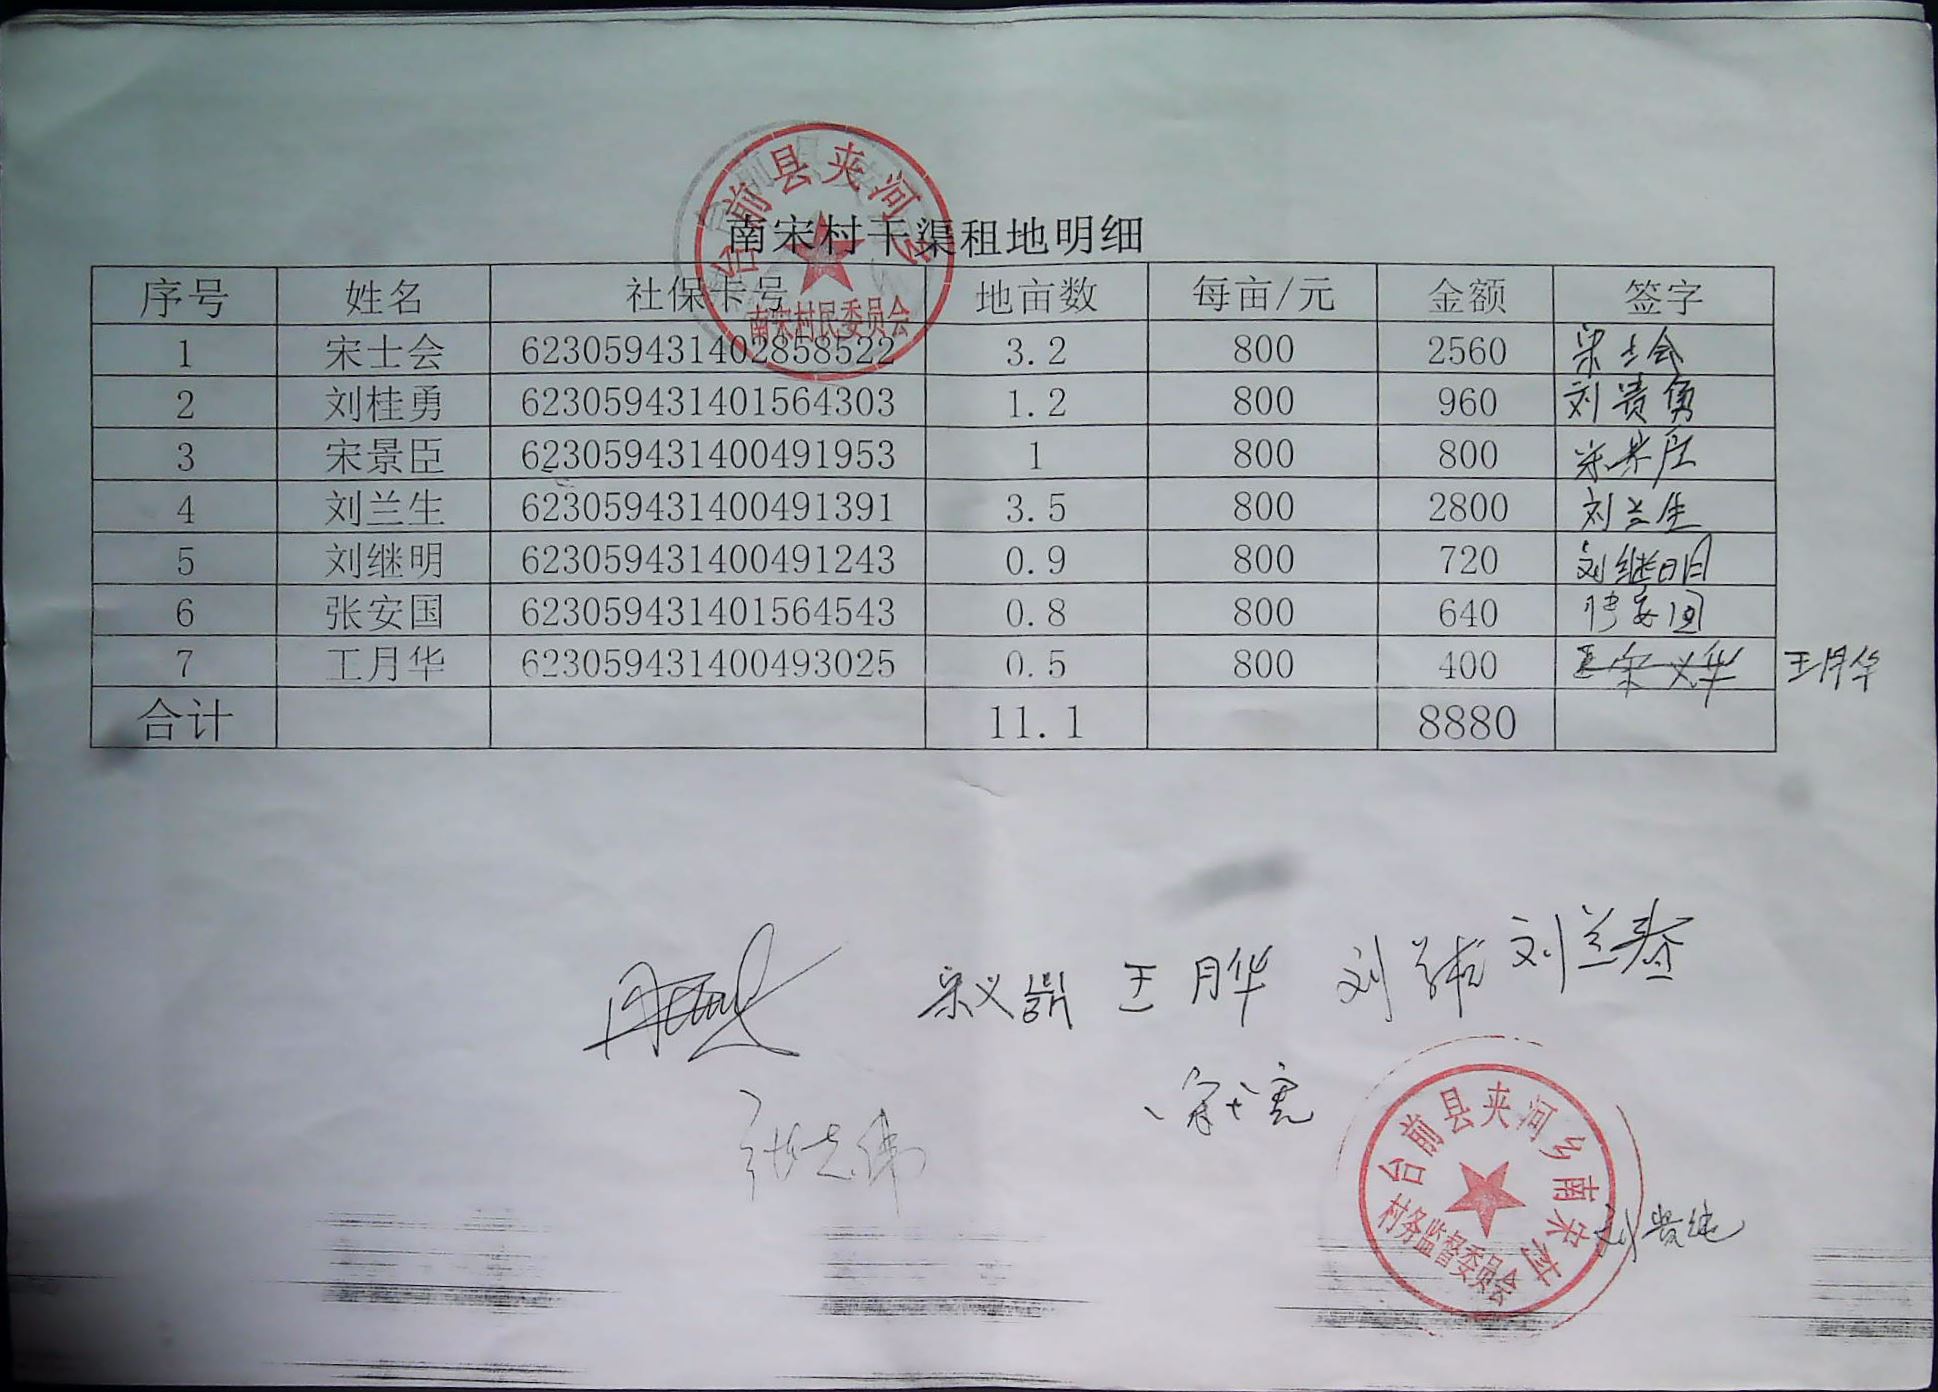 台前县夹河乡
南宋村民委员会
南宋村干渠租地明细
序号 姓名 社保卡号 地亩数 每亩/元 金额 签字
1 宋士会 623059431402858522 3.2 800 2560 宋士会
2 刘桂勇 623059431401564303 1.2 800 960 刘贵勇
3 宋景臣 623059431400491953 1 800 800 宋景臣
4 刘兰生 623059431400491391 3.5 800 2800 刘兰生
5 刘继明 623059431400491243 0.9 800 720 刘继明
6 张安国 623059431401564543 0.8 800 640 张安国
7 王月华 623059431400493025 0.5 800 400 王月华
合计 11.1 8880
宋义 王月华 刘 刘兰春
张志伟
台前县夹河乡南宋村
村务监督委员会